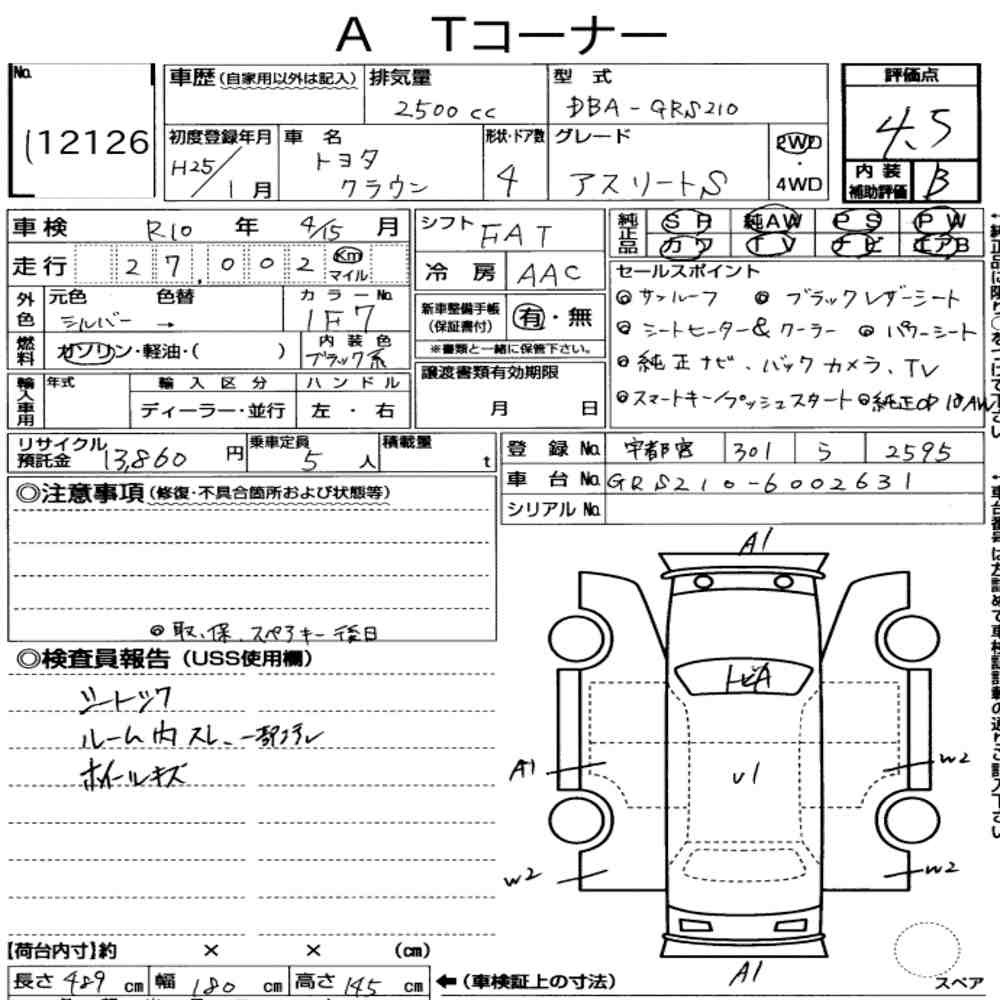 A Tコーナー
No. 車歴(自家用以外は記入) 排気量 型 式 評価点
2500cc DBA-GRS210
12126 初度登録年月 車 名 形状・ドア数 グレード 2WD 4.5
H25/1月 トヨタ クラウン 4 アスリートS ・ 4WD 内装補助評価 B
車検 R10 年 4/15 月 シフト FAT 純正品 SR 純AW PS PW
カワ TV ナビ エアB
走行 27,002 Km マイル 冷房 AAC セールスポイント
外色 元色 色替 カラーNo. 新車整備手帳(保証書付) 有・無
シルバー → 1F7
◎サンルーフ ◎ブラックレザーシート
◎シートヒーター&クーラー ◎パワーシート
燃料 ガソリン・軽油・( ) 内装色 ブラック系 ※書類と一緒に保管下さい。
◎純正ナビ、バックカメラ、TV
輸入車用 年式 輸入区分 ハンドル 譲渡書類有効期限
ディーラー・並行 左・右 月 日
◎スマートキー/プッシュスタート ◎純正OP18AW
リサイクル預託金 13,860 円 乗車定員 5 人 積載量 t
登録No. 宇都宮 301 ら 2595
車台No. GRS210-6002631
シリアルNo.
◎注意事項(修復・不具合箇所および状態等)
◎取、保、スペアキー後日
◎検査員報告(USS使用欄)
シートスク
ルーム内スレ、一部
ホイールキズ
A1
トビA
A1 U1 W2
W2 W2
A1
スペア
【荷台内寸】約 × × (cm)
長さ 489 cm 幅 180 cm 高さ 145 cm ←(車検証上の寸法)